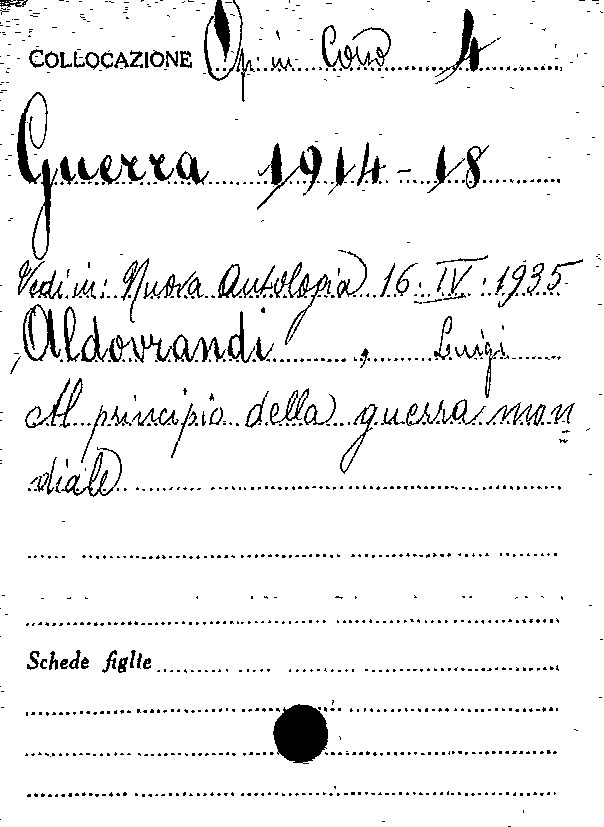 COLLOCAZIONE Op. in Corso 4
Guerra 1914-18
Vedi in: Nuova Antologia 16. IV. 1935
Aldovrandi, Luigi
Al principio della guerra mon=
diale
Schede figlie